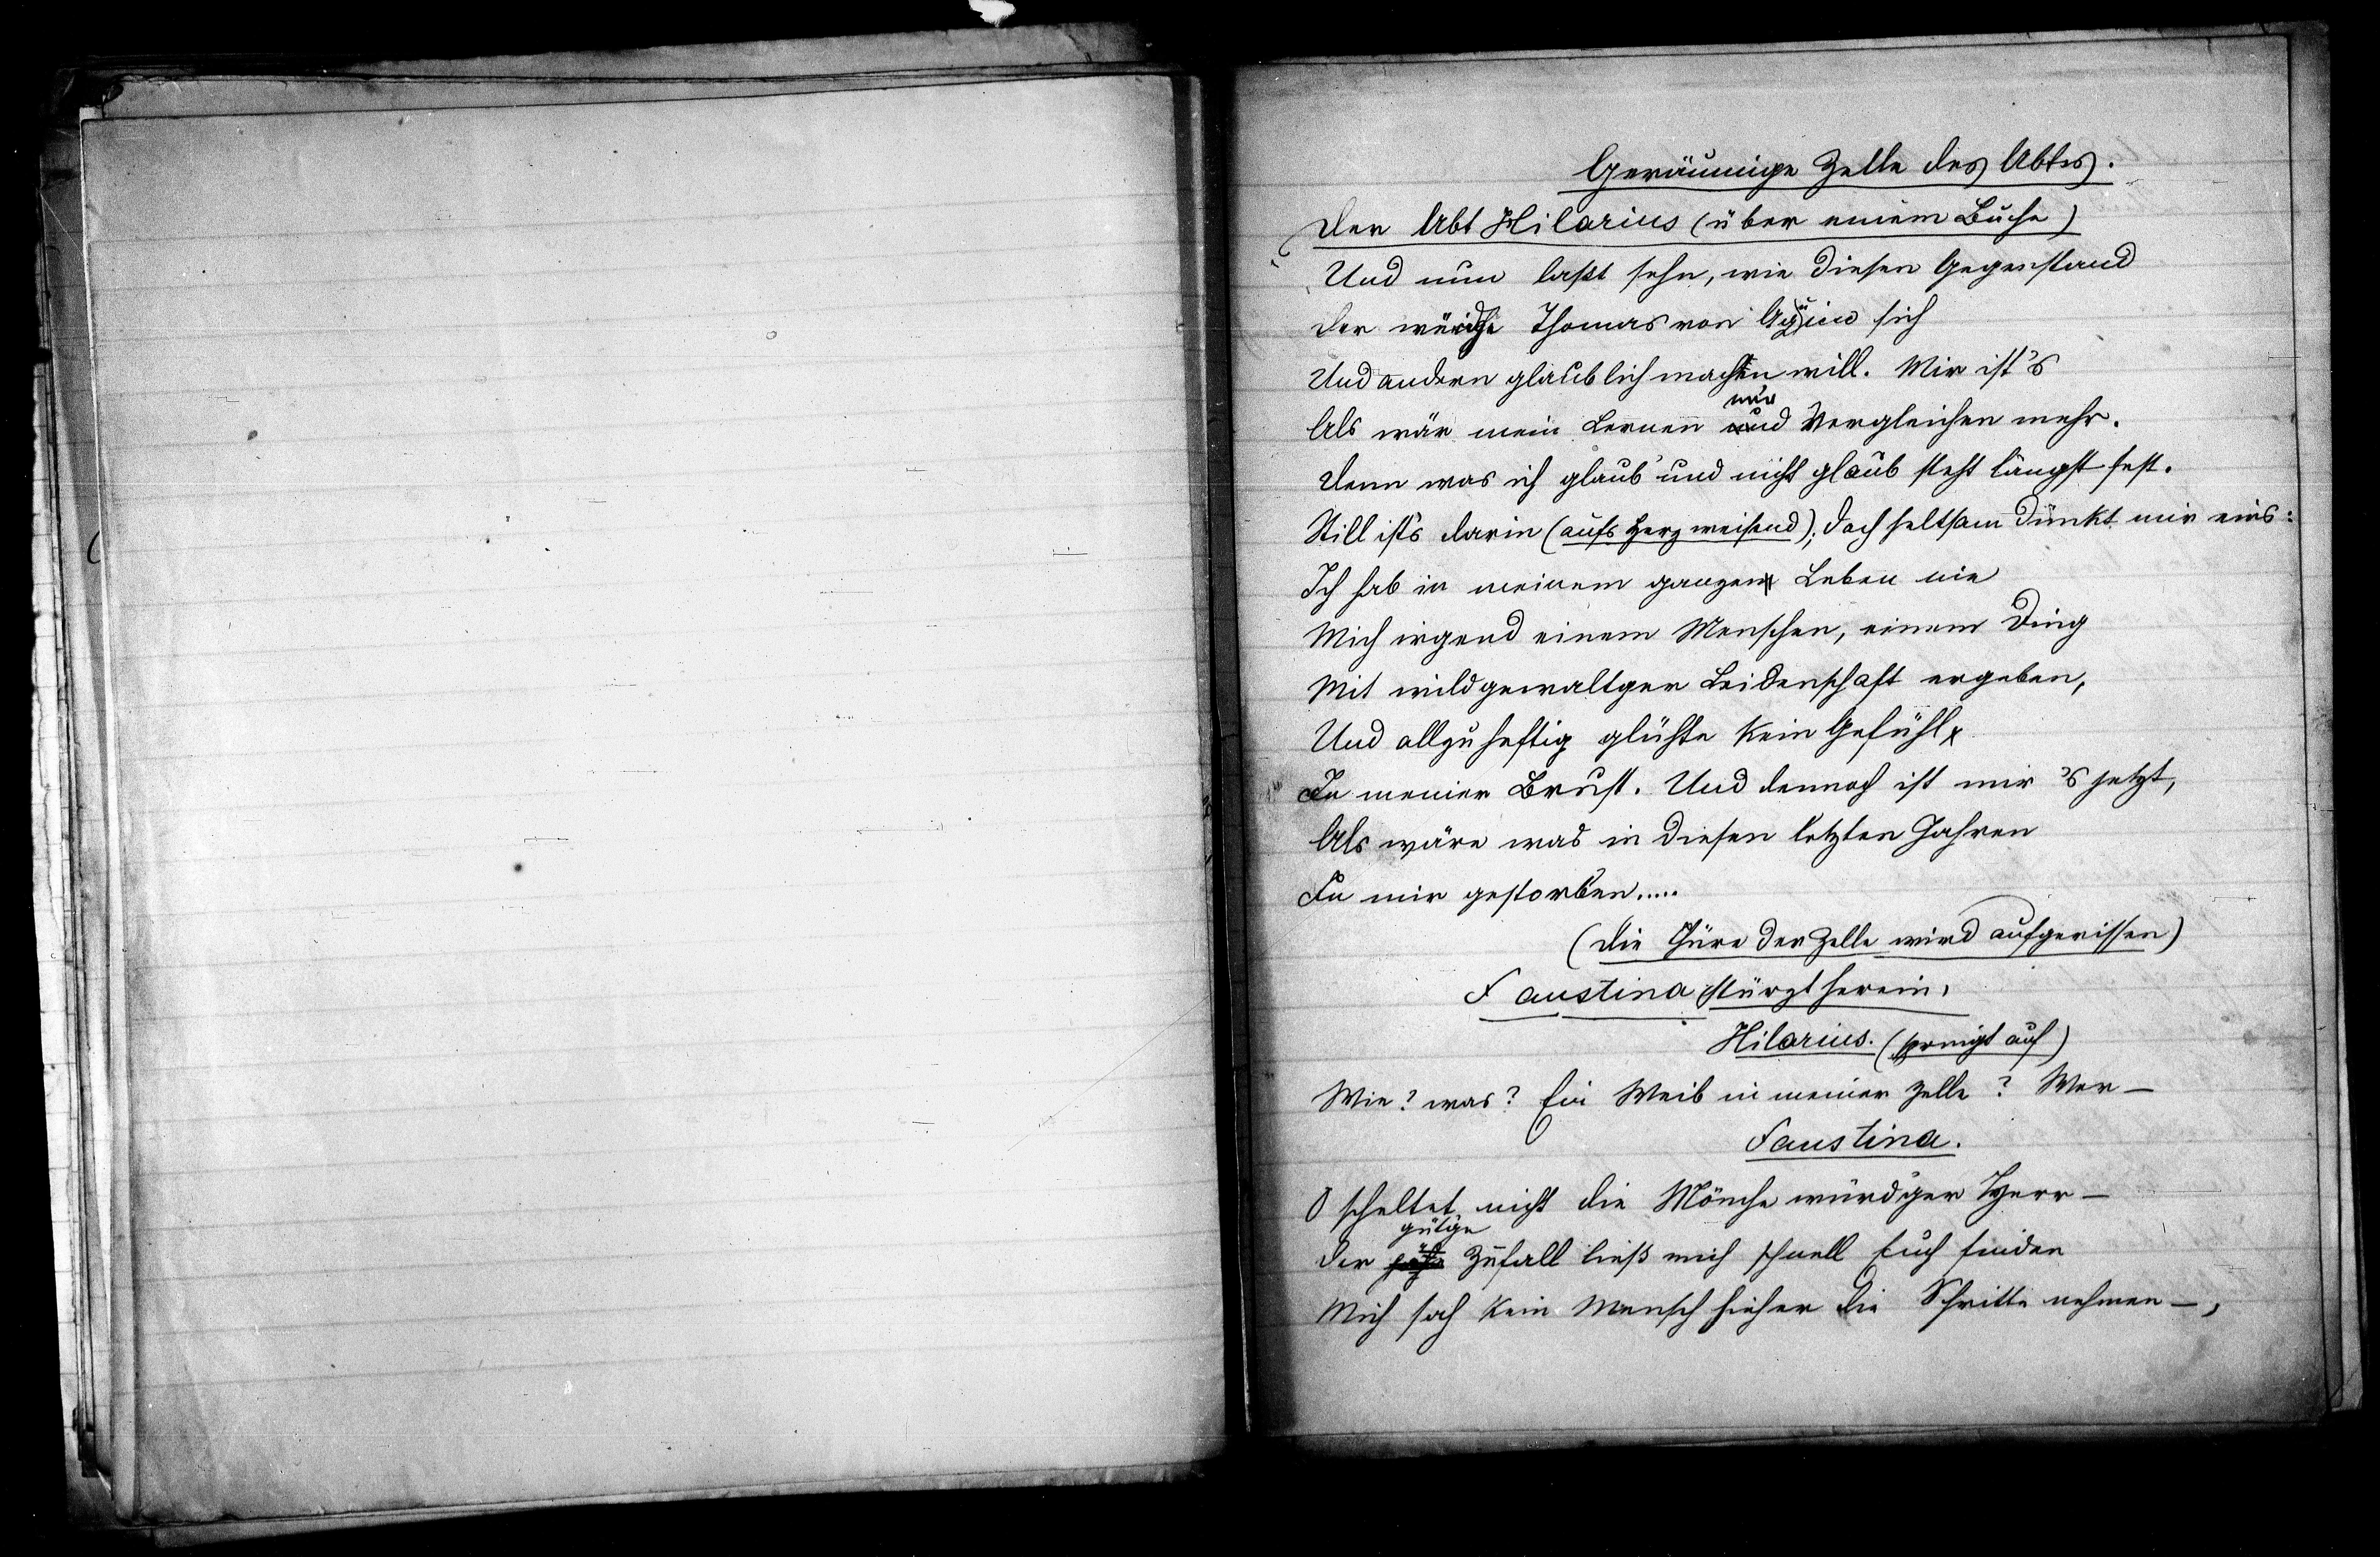 Geräumige Zelle des Abtes.
Der Abt Hilarius (über einem Buche)
Und nun laßt sehn, wie diesen Gegenstand
Der würdge Thomas von Aquino sich
Und andern glaublich machen will. Mir ist's
Als wär mein Lernen nur Vergleichen mehr.
Denn was ich glaub' und nicht glaub steht längst fest.
Still ist's darin (aufs Herz weisend); doch seltsam dünkt mir eins:
Ich hab in meinem ganzen Leben nie
Mich irgend einem Menschen, einem Ding
Mit wildgewaltger Leidenschaft ergeben,
Und allzuheftig glühte kein Gefühl
In meiner Brust. Und dennoch ist mir 's jetzt,
Als wäre was in diesen letzten Jahren
In mir gestorben.....
(Die Türe der Zelle wird aufgerissen)
Faustina stürzt herein.
Hilarius. (springt auf)
Wie? was? Ein Weib in meiner Zelle? Wer—
Faustina.
O scheltet nicht die Mönche würd'ger Herr—
gütge
Der Zufall ließ mich schnell Euch finden
Mich sah kein Mensch hieher die Schritte nehmen—,